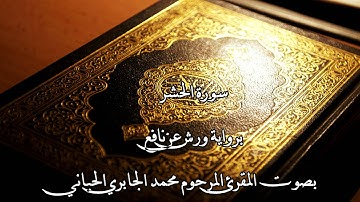 سورة الحشر
برواية ورش عن نافع
بصوت المقرئ المرحوم محمد الجابري الحياني